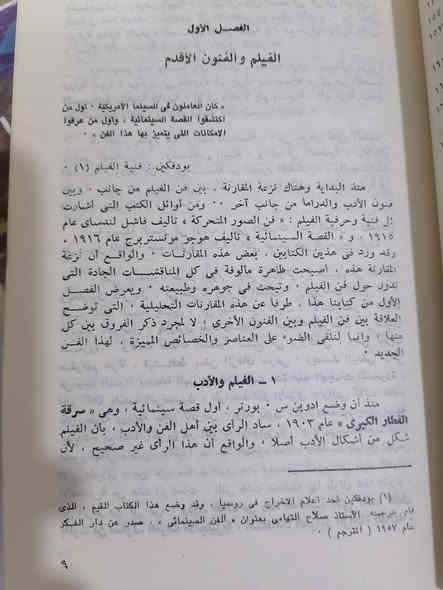 الفصل الأول
الفيلم والفنون الأقدم
« كان العاملون فى السينما الأمريكية ، أول من
اكتشفوا القصة السينمائية ، وأول من عرفوا
الامكانات التى يتميز بها هذا الفن » ٠
بودفكين : فنية الفيلم (١) ٠
منذ البداية وهناك نزعة المقارنة ، بين فن الفيلم من جانب ، وبين
فنون الأدب والدراما من جانب آخر ٠٠ ومن أوائل الكتب التى أشارت
الى فنية وحرفية الفيلم : « فن الصور المتحركة » تأليف فاشل لندساى عام
١٩١٥ ، و « القصة السينمائية » تأليف هوجو مونستربرج عام ١٩١٦ ،
وقد ورد فى هذين الكتابين ، بعض هذه المقارنات ٠ والواقع أن نزعة
المقارنة هذه ، أصبحت ظاهرة مألوفة فى كل المناقشات الجادة التى
تدور حول فن الفيلم ، وتبحث فى جوهره وطبيعته ٠ ويعرض الفصل
الأول من كتابنا هذا ، طرفا من هذه المقارنات التحليلية ، التى توضح
العلاقة بين فن الفيلم وبين الفنون الأخرى ؛ لا لمجرد ذكر الفروق بين كل
منها ؛ وانما لنلقى الضوء على العناصر والخصائص المميزة ، لهذا الفن
الجديد ٠
١ ــ الفيلم والأدب
منذ أن وضع ادوين س ٠ بورتر ، أول قصة سينمائية ، وهى « سرقة
القطار الكبرى » عام ١٩٠٣ ، ساد الرأى بين أهل الفن والأدب ، بأن الفيلم
شكل من أشكال الأدب أصلا ، والواقع أن هذا الرأى غير صحيح ، لأن
(١) بودفكين أحد أعلام الاخراج فى روسيا ، وقد وضع هذا الكتاب القيم ، الذى
قام بترجمته الأستاذ صلاح التهامى بعنوان « الفن السينمائى » ، صدر عن دار الفكر
عام ١٩٥٧ ( المترجم ) ٠
٩